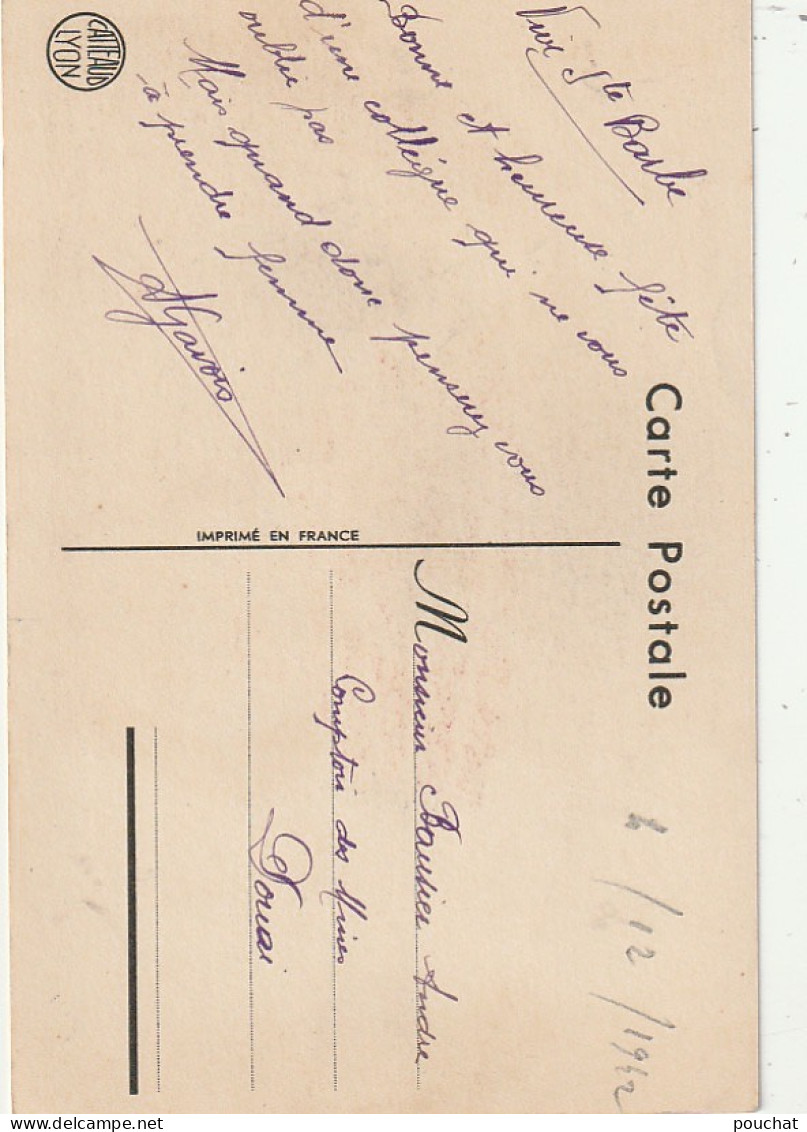 Carte Postale
Vive Ste Barbe
Bonne et heureuse fête
d'une collègue qui ne vous
oublie pas
Mais quand donc pensez vous
à prendre femme
CATTEAUD
LYON
IMPRIMÉ EN FRANCE
/12/1942
Monsieur André
Comptoir des Mines
Douai
pouchat